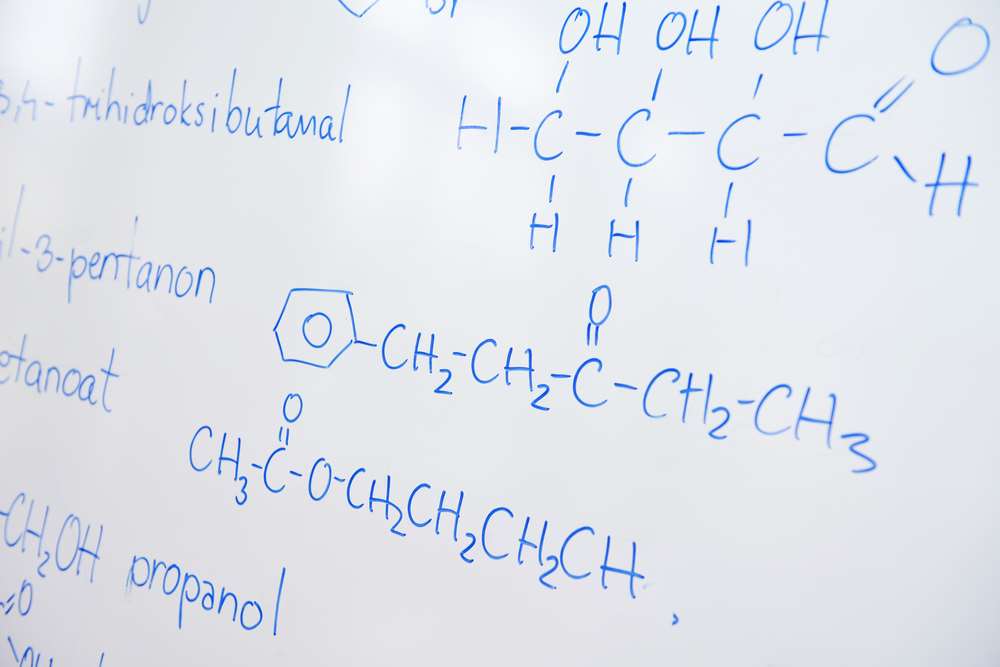 OH OH OH O
3,4-trihidroksibutanal H-C-C-C-C H
H H H
il-3-pentanon
O
CH2-CH2-C-CH2-CH3
etanoat
O
CH3-C-O-CH2CH2CH2CH
-CH2OH propanol
=O